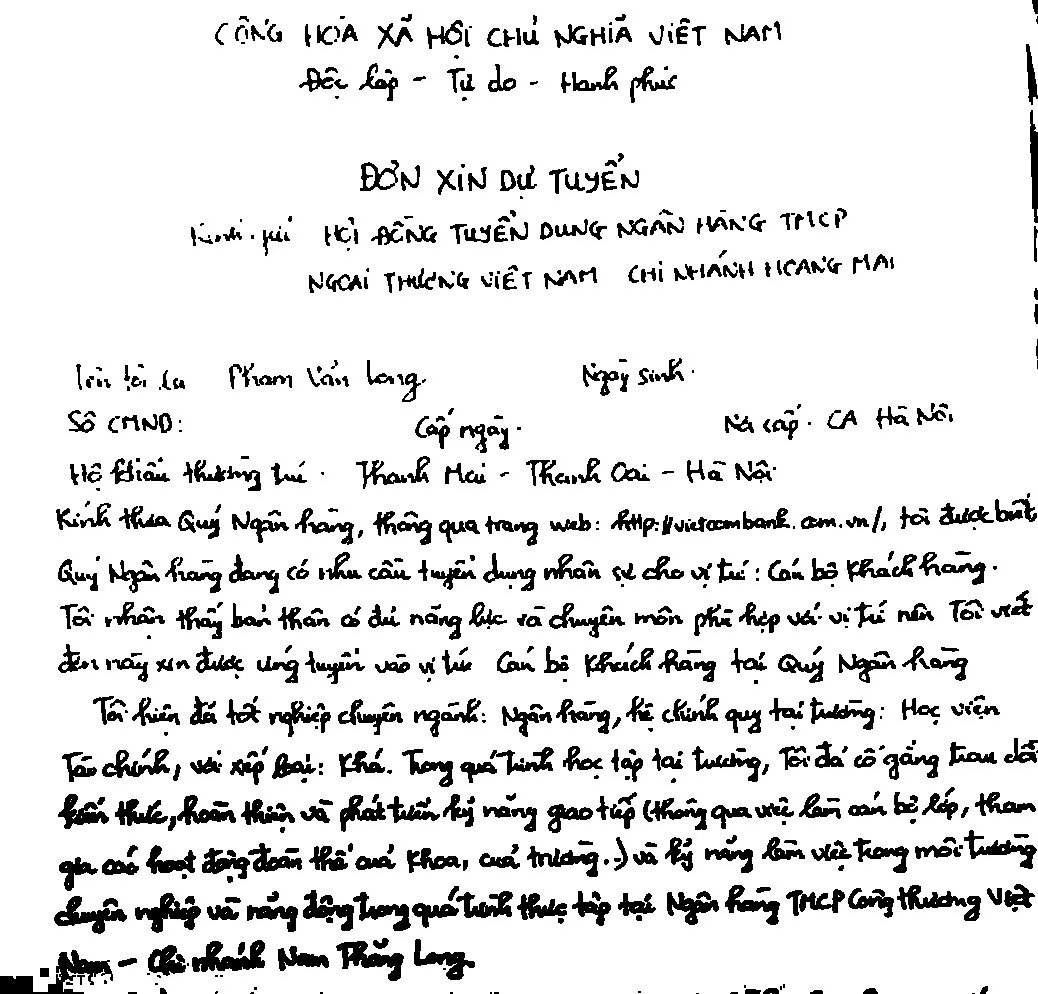 CỘNG HÒA XÃ HỘI CHỦ NGHĨA VIỆT NAM
Độc lập - Tự do - Hạnh phúc
ĐƠN XIN DỰ TUYỂN
Kính gửi HỘI ĐỒNG TUYỂN DỤNG NGÂN HÀNG TMCP
NGOẠI THƯƠNG VIỆT NAM CHI NHÁNH HOÀNG MAI
Tên tôi là Phạm Văn Long. Ngày sinh.
Số CMND: Cấp ngày. Nơi cấp. CA Hà Nội
Hộ khẩu thường trú. Thanh Mai - Thanh Oai - Hà Nội
Kính thưa Quý Ngân hàng, thông qua trang web: http://vietcombank.com.vn/, tôi được biết
Quý Ngân hàng đang có nhu cầu tuyển dụng nhân sự cho vị trí: Cán bộ Khách hàng.
Tôi nhận thấy bản thân có đủ năng lực và chuyên môn phù hợp với vị trí nên Tôi viết
đơn này xin được ứng tuyển vào vị trí Cán bộ Khách hàng tại Quý Ngân hàng
Tôi hiện đã tốt nghiệp chuyên ngành: Ngân hàng, hệ chính quy tại trường: Học viện
Tài chính, với xếp loại: Khá. Trong quá trình học tập tại trường, Tôi đã cố gắng trau dồi
kiến thức, hoàn thiện và phát triển kỹ năng giao tiếp (thông qua việc làm cán bộ lớp, tham
gia các hoạt động đoàn thể của khoa, của trường..) và kỹ năng làm việc trong môi trường
chuyên nghiệp và năng động trong quá trình thực tập tại Ngân hàng TMCP Công thương Việt
Nam - Chi nhánh Nam Thăng Long.